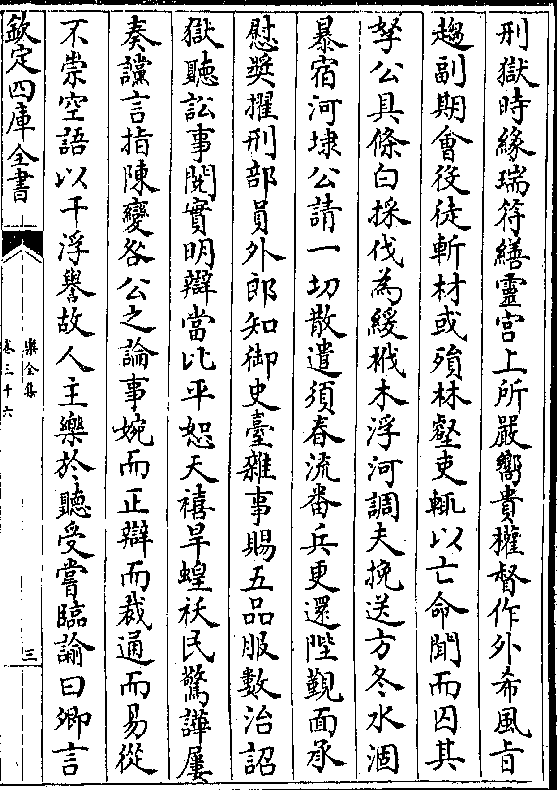 刑獄時緣瑞符繕靈宫上所嚴嚮貴權督作外希風旨
趨副期會役徒斬材或殞林壑吏輒以亡命聞而囚其
孥公具條白採伐為緩栰木浮河調夫挽送方冬水涸
暴宿河埭公請一切散遣須春流番兵更還陛覲面承
慰奬擢刑部員外郎知御史臺雜事賜五品服數治詔
獄聽訟事閱實明辯當比平恕天禧旱蝗祅民驚譁屢
奏讜言指陳變咎公之論事婉而正辯而裁通而易從
不崇空語以干浮譽故人主樂於聽受嘗臨諭曰卿言
欽定四庫全書
樂全集
卷三十六
三